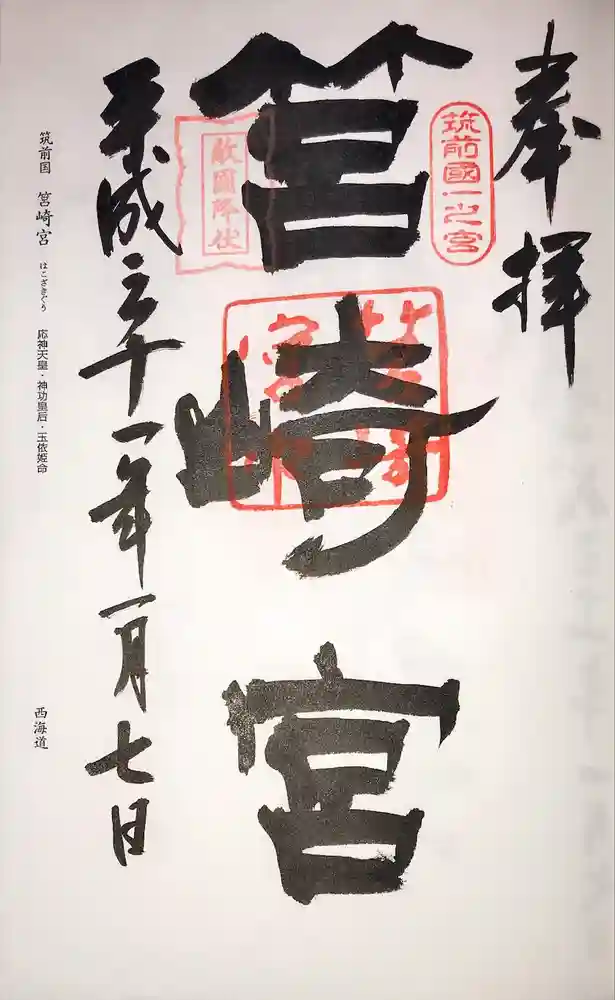 奉拝
筑前國一之宮
筥崎宮
敵國降伏
平成三十一年一月七日
筑前国 筥崎宮 はこざきぐう 応神天皇・神功皇后・玉依姫命
西海道